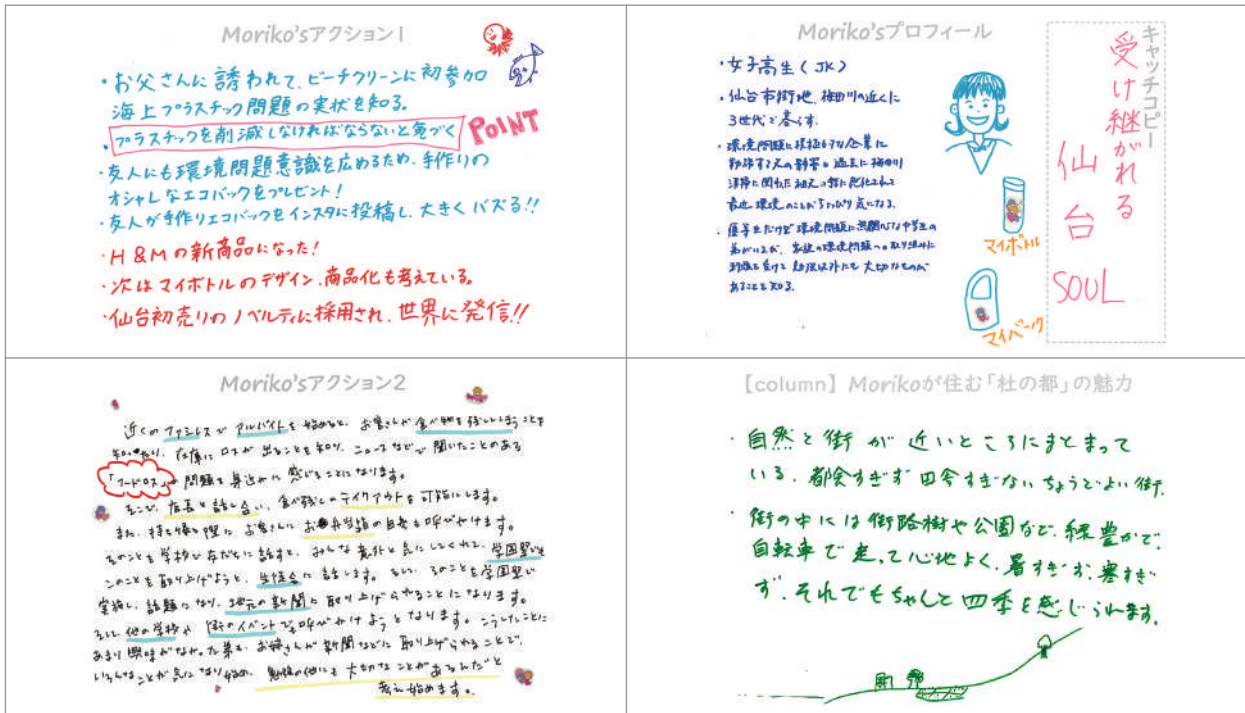 Moriko'sアクション1
・お父さんに誘われて、ビーチクリーンに初参加
海上プラスチック問題の実状を知る。
・プラスチックを削減しなければならないと気づく
POINT
・友人にも環境問題意識を広めるため、手作りの
オシャレなエコバックをプレゼント!
・友人が手作りエコバックをインスタに投稿し、大きくバズる!!
・H&Mの新商品になった!
・次はマイボトルのデザイン、商品化も考えている。
・仙台初売りのノベルティに採用され、世界に発信!!
Moriko'sプロフィール
・女子高生(JK)
・仙台市街地、梅田川の近くに
3世代で暮らす。
・環境問題に積極的な企業に
勤務する父の影響と過去に梅田川
清掃に関わった祖父の話に感化されて
最近環境のことがちょっぴり気になる。
・優等生だけど環境問題に無関心な中学生の
弟がいるが、家族の環境問題への取り組みに
刺激を受けて勉強以外にも大切なものが
あることを知る。
マイボトル
マイバック
キャッチコピー
受け継がれる
仙台
SOUL
Moriko'sアクション2
近くのファミレスでアルバイトを始めると、お客さんが食べ物を残してしまうことを
知ったり、在庫にロスが出ることを知り、ニュースなどで聞いたことのある
「フードロス」の問題を身近に感じることになります。
そこで、店長と話し合い、食べ残しのテイクアウトを可能にします。
また、持ち帰る際にお客さんにお弁当箱の自参も呼びかけます。
そのことを学校で友だちに話すと、みんな意外と気にしてくれて、学園祭でも
このことを取り上げようと、生徒会に話します。そして、そのことを学園祭で
実施し、話題になり、地元の新聞に取り上げられることになります。
そして、他の学校や街のイベントでも呼びかけようとなります。こうしたことに
あまり興味がなかった弟も、お姉さんが新聞などに取り上げられることで、
いろんなことが気になり始め、勉強の他にも大切なことがあるんだと
考え始めます。
【column】Morikoが住む「杜の都」の魅力
・自然と街が近いところにまとまって
いる。都会すぎず田舎すぎないちょうどよい街。
・街の中には街路樹や公園など、緑豊かで、
自転車で走って心地よく、暑すぎず、寒すぎ
ず、それでもちゃんと四季を感じられます。